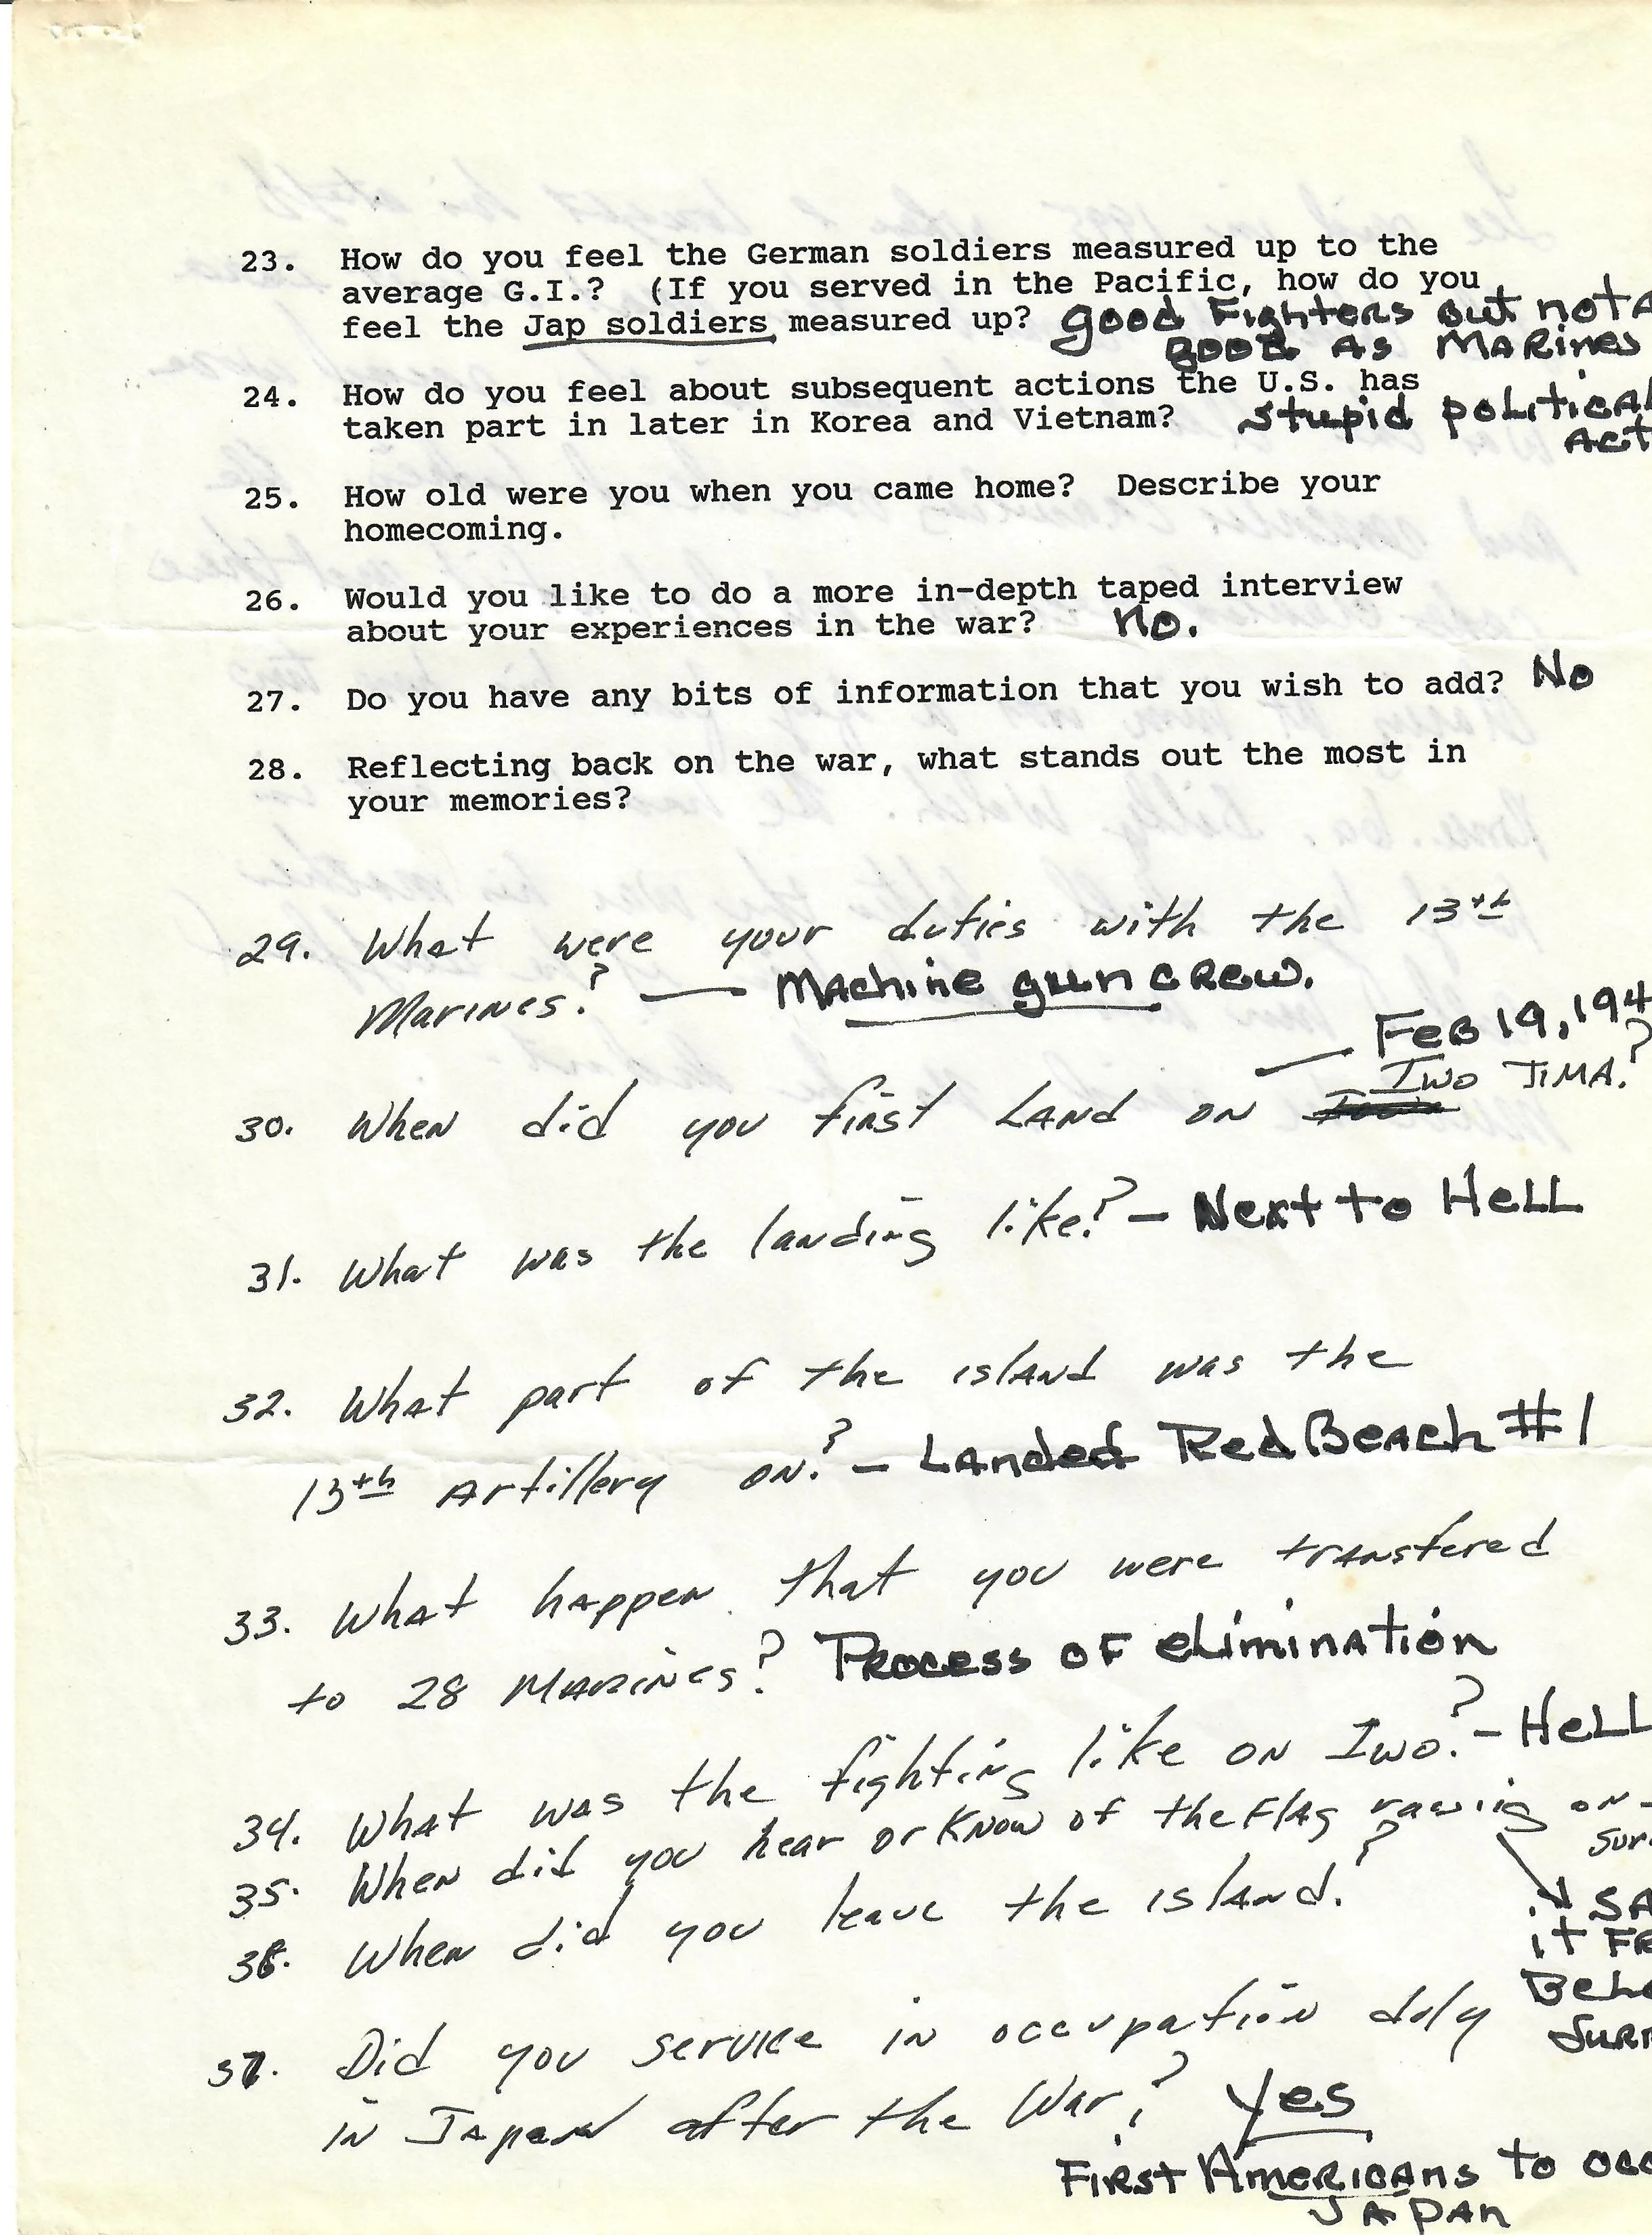 23. How do you feel the German soldiers measured up to the
average G.I.? (If you served in the Pacific, how do you
feel the Jap soldiers measured up? good Fighters but not A
good As MARines
24. How do you feel about subsequent actions the U.S. has
taken part in later in Korea and Vietnam? stupid political
Act
25. How old were you when you came home? Describe your
homecoming.
26. Would you like to do a more in-depth taped interview
about your experiences in the war? No.
27. Do you have any bits of information that you wish to add? No
28. Reflecting back on the war, what stands out the most in
your memories?
29. What were your duties with the 13th
Marines? — Machine gun CREW.
— FEB 19, 194
30. When did you first LAND ON Iwo JIMA?
31. What was the landing like? — Next to HELL
32. What part of the island was the
13th Artillery on? — LAnded Red BeAch #1
33. What happen that you were transfered
to 28 MARINES? PROCESS OF eliminAtion
34. What was the fighting like on Iwo? — HELL
35. When did you hear or know of the Flag on
Sur
SA
it FR
BeLo
SuR
36. When did you leave the island?
37. Did you service in occupation duly
in Japan after the War? Yes
FIRST AMERICANS to occ
JAPAN